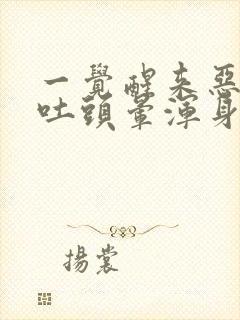 一覺醒來惡
吐頭暈渾身
揚裳